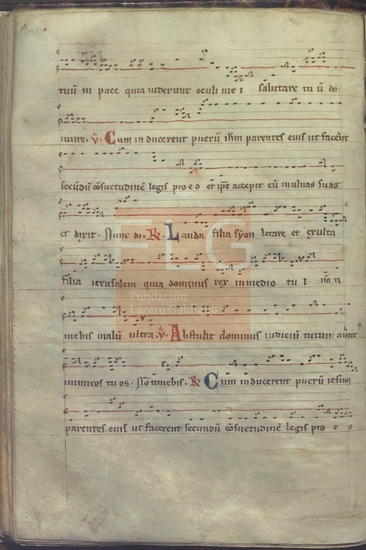 tuū in pace quia viderunt oculi mei salutare tuū do
mine. ℣. Cum inducerent puerū ihm parentes eius ut facerēt
secūdū cōsuetudinem legis pro eo et ipse accepit eū in ulnas suas
et dixit. Nunc di. ℟. Lauda filia syon letare et exulta
filia ierusalem quia dominus rex in medio tui nō ti
mebis malū ultra. ℣. Abstulit dominus iudiciū tuum
inimicos tuos. Nō timebis. ℟. Cum inducerent puerū iesum
parentes eius ut facerent secundū cōsuetudinē legis pro eo
FLG
Fundación